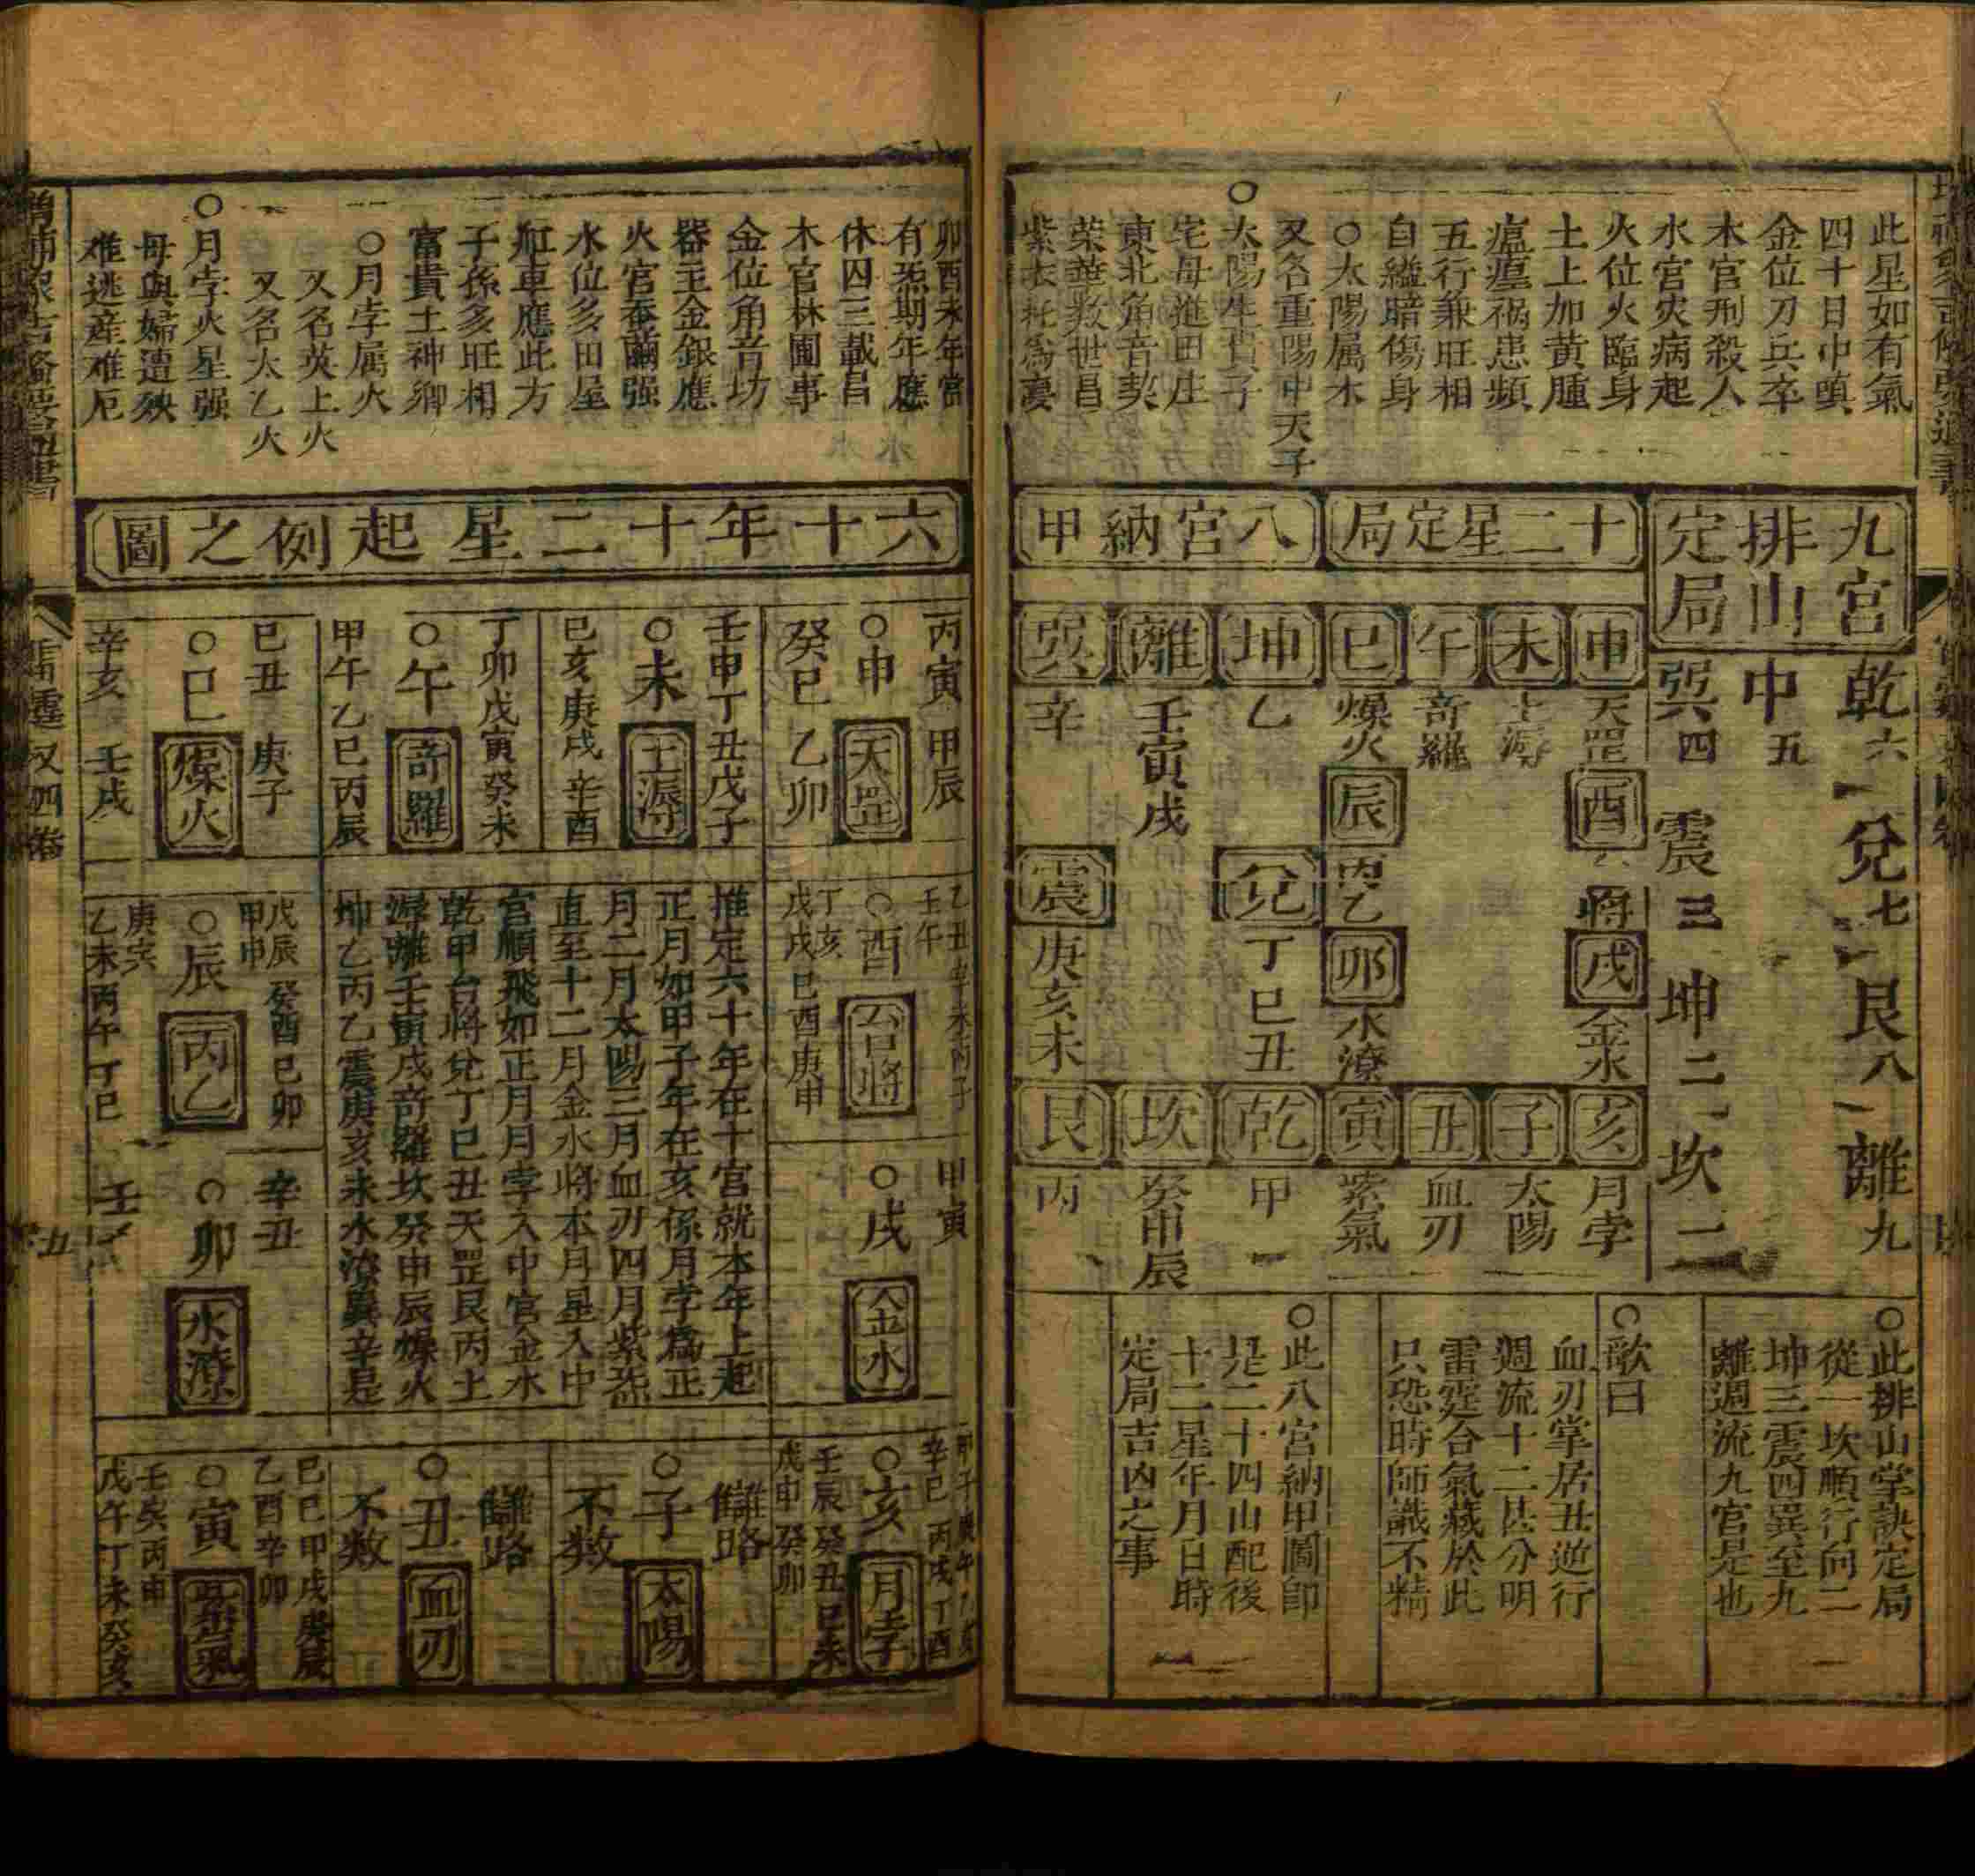 此星如有氣
四十日中嗔
金位刀兵卒
木官刑殺人
水宮灾病起
火位火臨身
土上加黃腫
瘟𤺊祸患頻
五行兼旺相
自縊暗傷身
○太陽属木
又名重陽中天子
○太陽生貴子
宅母進田庄
東北角音契
荣華数世昌
九宮排山定局
乾六
兌七
艮八
離九
中五
巽四
震三
坤二
坎一
○此排山掌訣定局
從一坎順行向二
坤三震四巽至九
離週流九宮是也
十二星定局
申
天罡
酉
將
戌
金水
亥
月孛
未
土𣿰
子
太陽
午
奇羅
丑
血刃
巳
燥火
辰
丙乙
卯
水潦
寅
紫氣
○歌曰
血刃掌居丑逆行
週流十二甚分明
雷霆合氣藏於此
只恐時師識不精
八宮納甲
坤
乙
兌
丁巳丑
乾
甲
離
壬寅戌
坎
癸申辰
巽
辛
震
庚亥未
艮
丙
○此八宮納甲圖即
是二十四山配後
十二星年月日時
定局吉凶之事
卯酉未年當
有炁期年應
休囚三載昌
木官林圃事
金位角音坊
器主金銀應
火宮蚕繭强
水位多田屋
舡車應此方
子孫多旺相
富貴土神鄉
○月孛属火
又名英上火
又名太乙火
○月孛火星强
母與婦遭殃
难逃産难厄
六十年十二星起例之圖
丙寅 甲辰
○申 天罡
癸巳 乙卯
壬申丁丑戊子
○未 土𣿰
己亥庚戌 辛酉
丁卯戊寅癸未
○午 奇羅
甲午乙巳丙辰
己丑 庚子
○巳 燥火
辛亥 壬戌
壬午
○酉 台將
丁亥
戊戌 己酉庚申
推定六十年在十宮就本年上起
正月如甲子年在亥係月孛為正
月二月太陽三月血刃四月紫炁
直至十二月金水將本月星入中
宮順飛如正月月孛入中宮金水
乾甲台將兌丁巳丑天罡艮丙土
𣿰離壬寅戌奇羅坎癸申辰燥火
坤乙丙乙震庚亥未水潦巽辛是
戊辰 癸酉己卯
甲申
○辰 丙乙
庚寅
乙未丙午丁巳
甲寅
○戌 金水
辛丑
○卯 水潦
辛巳 丙戌丁酉
○亥 月孛
壬辰 癸丑己未
戊申 癸卯
雠路
○子 太陽
不数
雠路
○丑 血刃
不数
己巳甲戌庚辰
乙酉辛卯
○寅 紫氣
戊午丁未癸亥
五